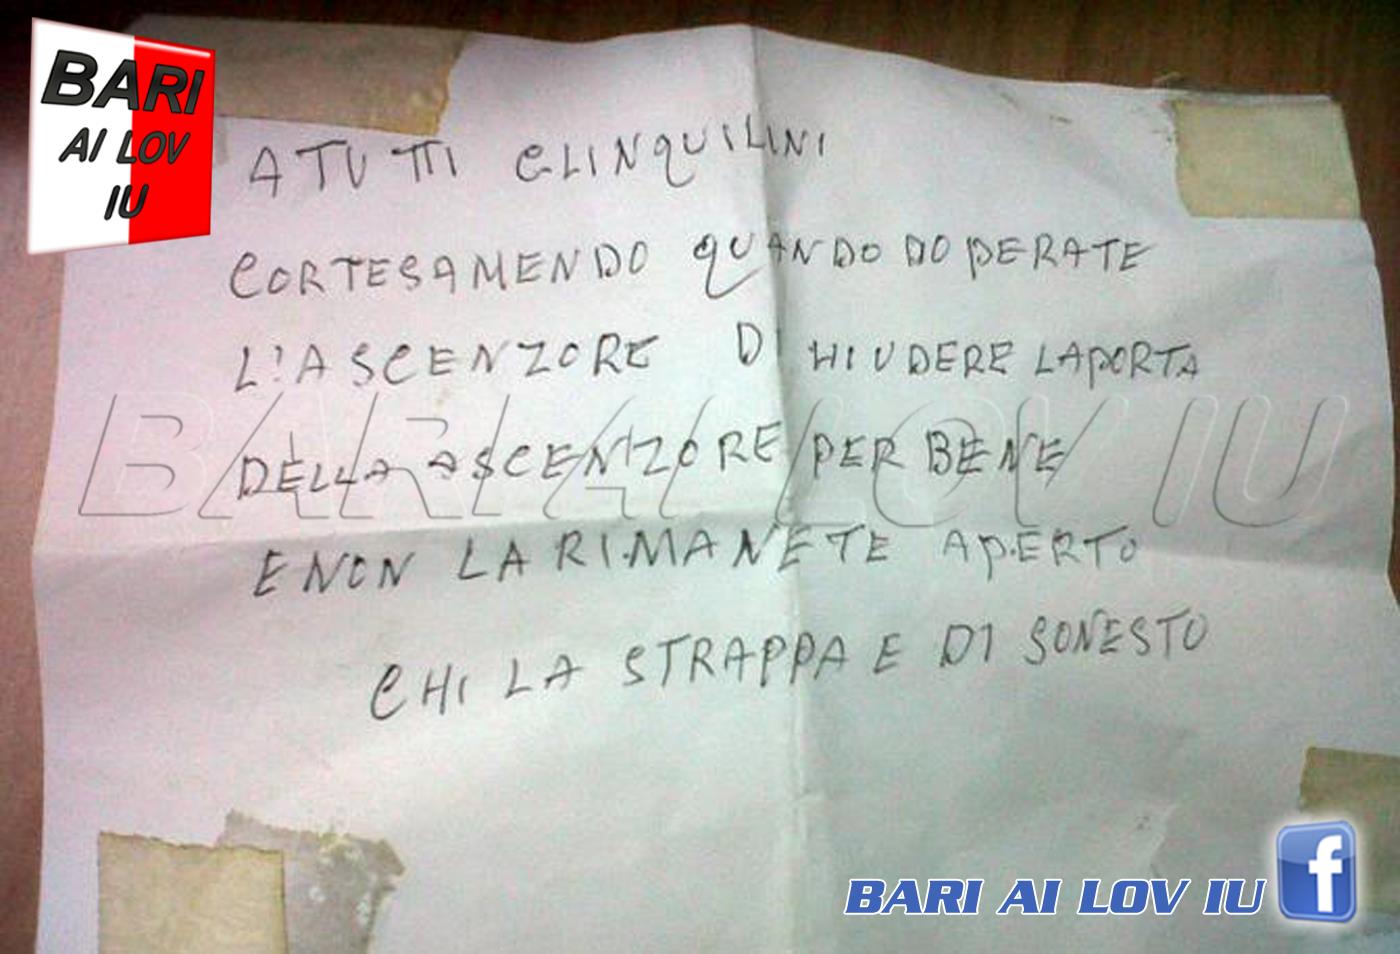 BARI
AI LOV
IU
A TUTTI GLINQUILINI
CORTESAMENDO QUANDO DOPERATE
L'ASCENZORE DI HIUDERE LAPORTA
DELLA ASCENZORE PER BENE
E NON LA RIMANETE APERTO
CHI LA STRAPPA E DI SONESTO
BARI AI LOV IU
BARI AI LOV IU f